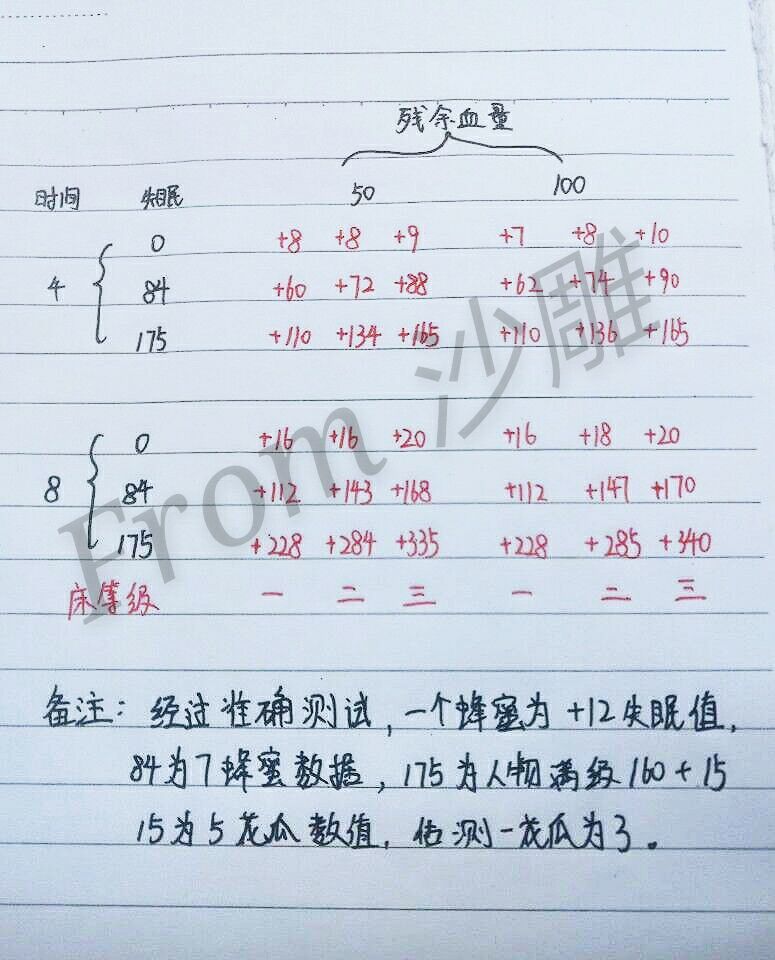 残余血量
时间 失眠 50 100
0 +8 +8 +9 +7 +8 +10
4 84 +60 +72 +88 +62 +74 +90
175 +110 +134 +165 +110 +136 +165
0 +16 +16 +20 +16 +18 +20
8 84 +112 +143 +168 +112 +147 +170
175 +228 +284 +335 +228 +285 +340
床等级 一 二 三 一 二 三
From 沙雕
备注：经过准确测试，一个蜂蜜为+12失眠值，
84为7蜂蜜数据，175为人物满级160+15
15为5花瓜数值，估测一花瓜为3。